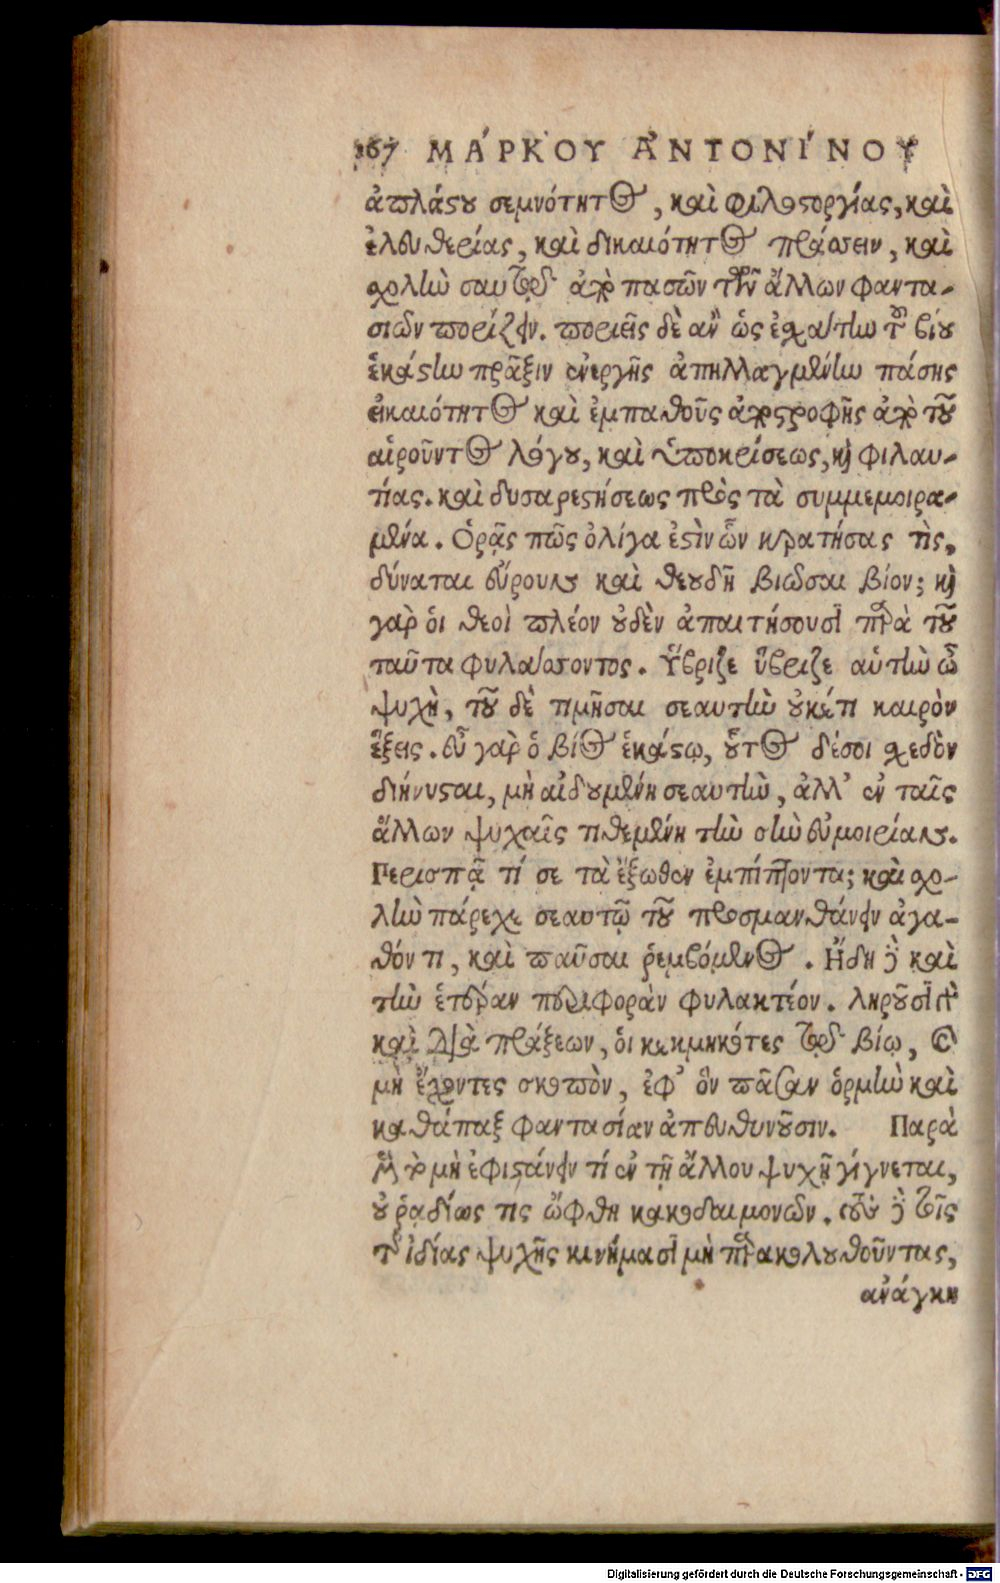 167 ΜΆΡΚΟΥ ἈΝΤΟΝΊΝΟΥ
ἀπλάστου σεμνότητος, καὶ φιλοστοργίας, καὶ
ἐλευθερίας, καὶ δικαιότητος πράσσειν, καὶ
σχολὴν σαυτῷ ἀπὸ πασῶν τῶν ἄλλων φαντα-
σιῶν πορίζειν. ποριεῖς δὲ ἂν ὡς ἐσχάτην τοῦ βίου
ἑκάστην πρᾶξιν ἐνεργῇς ἀπηλλαγμένην πάσης
εἰκαιότητος καὶ ἐμπαθοῦς ἀποστροφῆς ἀπὸ τοῦ
αἱροῦντος λόγου, καὶ ὑποκρίσεως, καὶ φιλαυ-
τίας. καὶ δυσαρεστήσεως πρὸς τὰ συμμεμοιρα-
μένα. Ὁρᾷς πῶς ὀλίγα ἐστὶν ὧν κρατήσας τὶς,
δύναται εὔρουν καὶ θευδῆ βιῶσαι βίον; καὶ
γὰρ οἱ θεοὶ πλέον οὐδὲν ἀπαιτήσουσι παρὰ τοῦ
ταῦτα φυλάσσοντος. Ὕβριζε ὕβριζε αὑτὴν ὦ
ψυχὴ, τοῦ δὲ τιμῆσαι σεαυτὴν οὐκέτι καιρὸν
ἕξεις. εὖ γὰρ ὁ βίος ἑκάστῳ, οὗτος δέ σοι σχεδὸν
διήνυσται, μὴ αἰδουμένη σεαυτὴν, ἀλλ' ἐν ταῖς
ἄλλων ψυχαῖς τιθεμένη τὴν σὴν εὐμοιρίαν.
Περισπᾷ τί σε τὰ ἔξωθεν ἐμπίπτοντα; καὶ σχο-
λὴν πάρεχε σεαυτῷ τοῦ προσμανθάνειν ἀγα-
θόν τι, καὶ παῦσαι ῥεμβόμενος. Ἤδη δὲ καὶ
τὴν ἑτέραν περιφορὰν φυλακτέον. ληροῦσι γὰρ
καὶ διὰ πράξεων, οἱ κεκμηκότες τῷ βίῳ, καὶ
μὴ ἔχοντες σκοπὸν, ἐφ' ὃν πᾶσαν ὁρμὴν καὶ
καθάπαξ φαντασίαν ἀπευθυνοῦσιν. Παρὰ
μὲν τὸ μὴ ἐφιστάνειν τί ἐν τῇ ἄλλου ψυχῇ γίγνεται,
οὐ ῥᾳδίως τις ὤφθη κακοδαιμονῶν. τοὺς δὲ τοῖς
τῆς ἰδίας ψυχῆς κινήμασι μὴ παρακολουθοῦντας,
ἀνάγκη
Digitalisierung gefördert durch die Deutsche Forschungsgemeinschaft - DFG